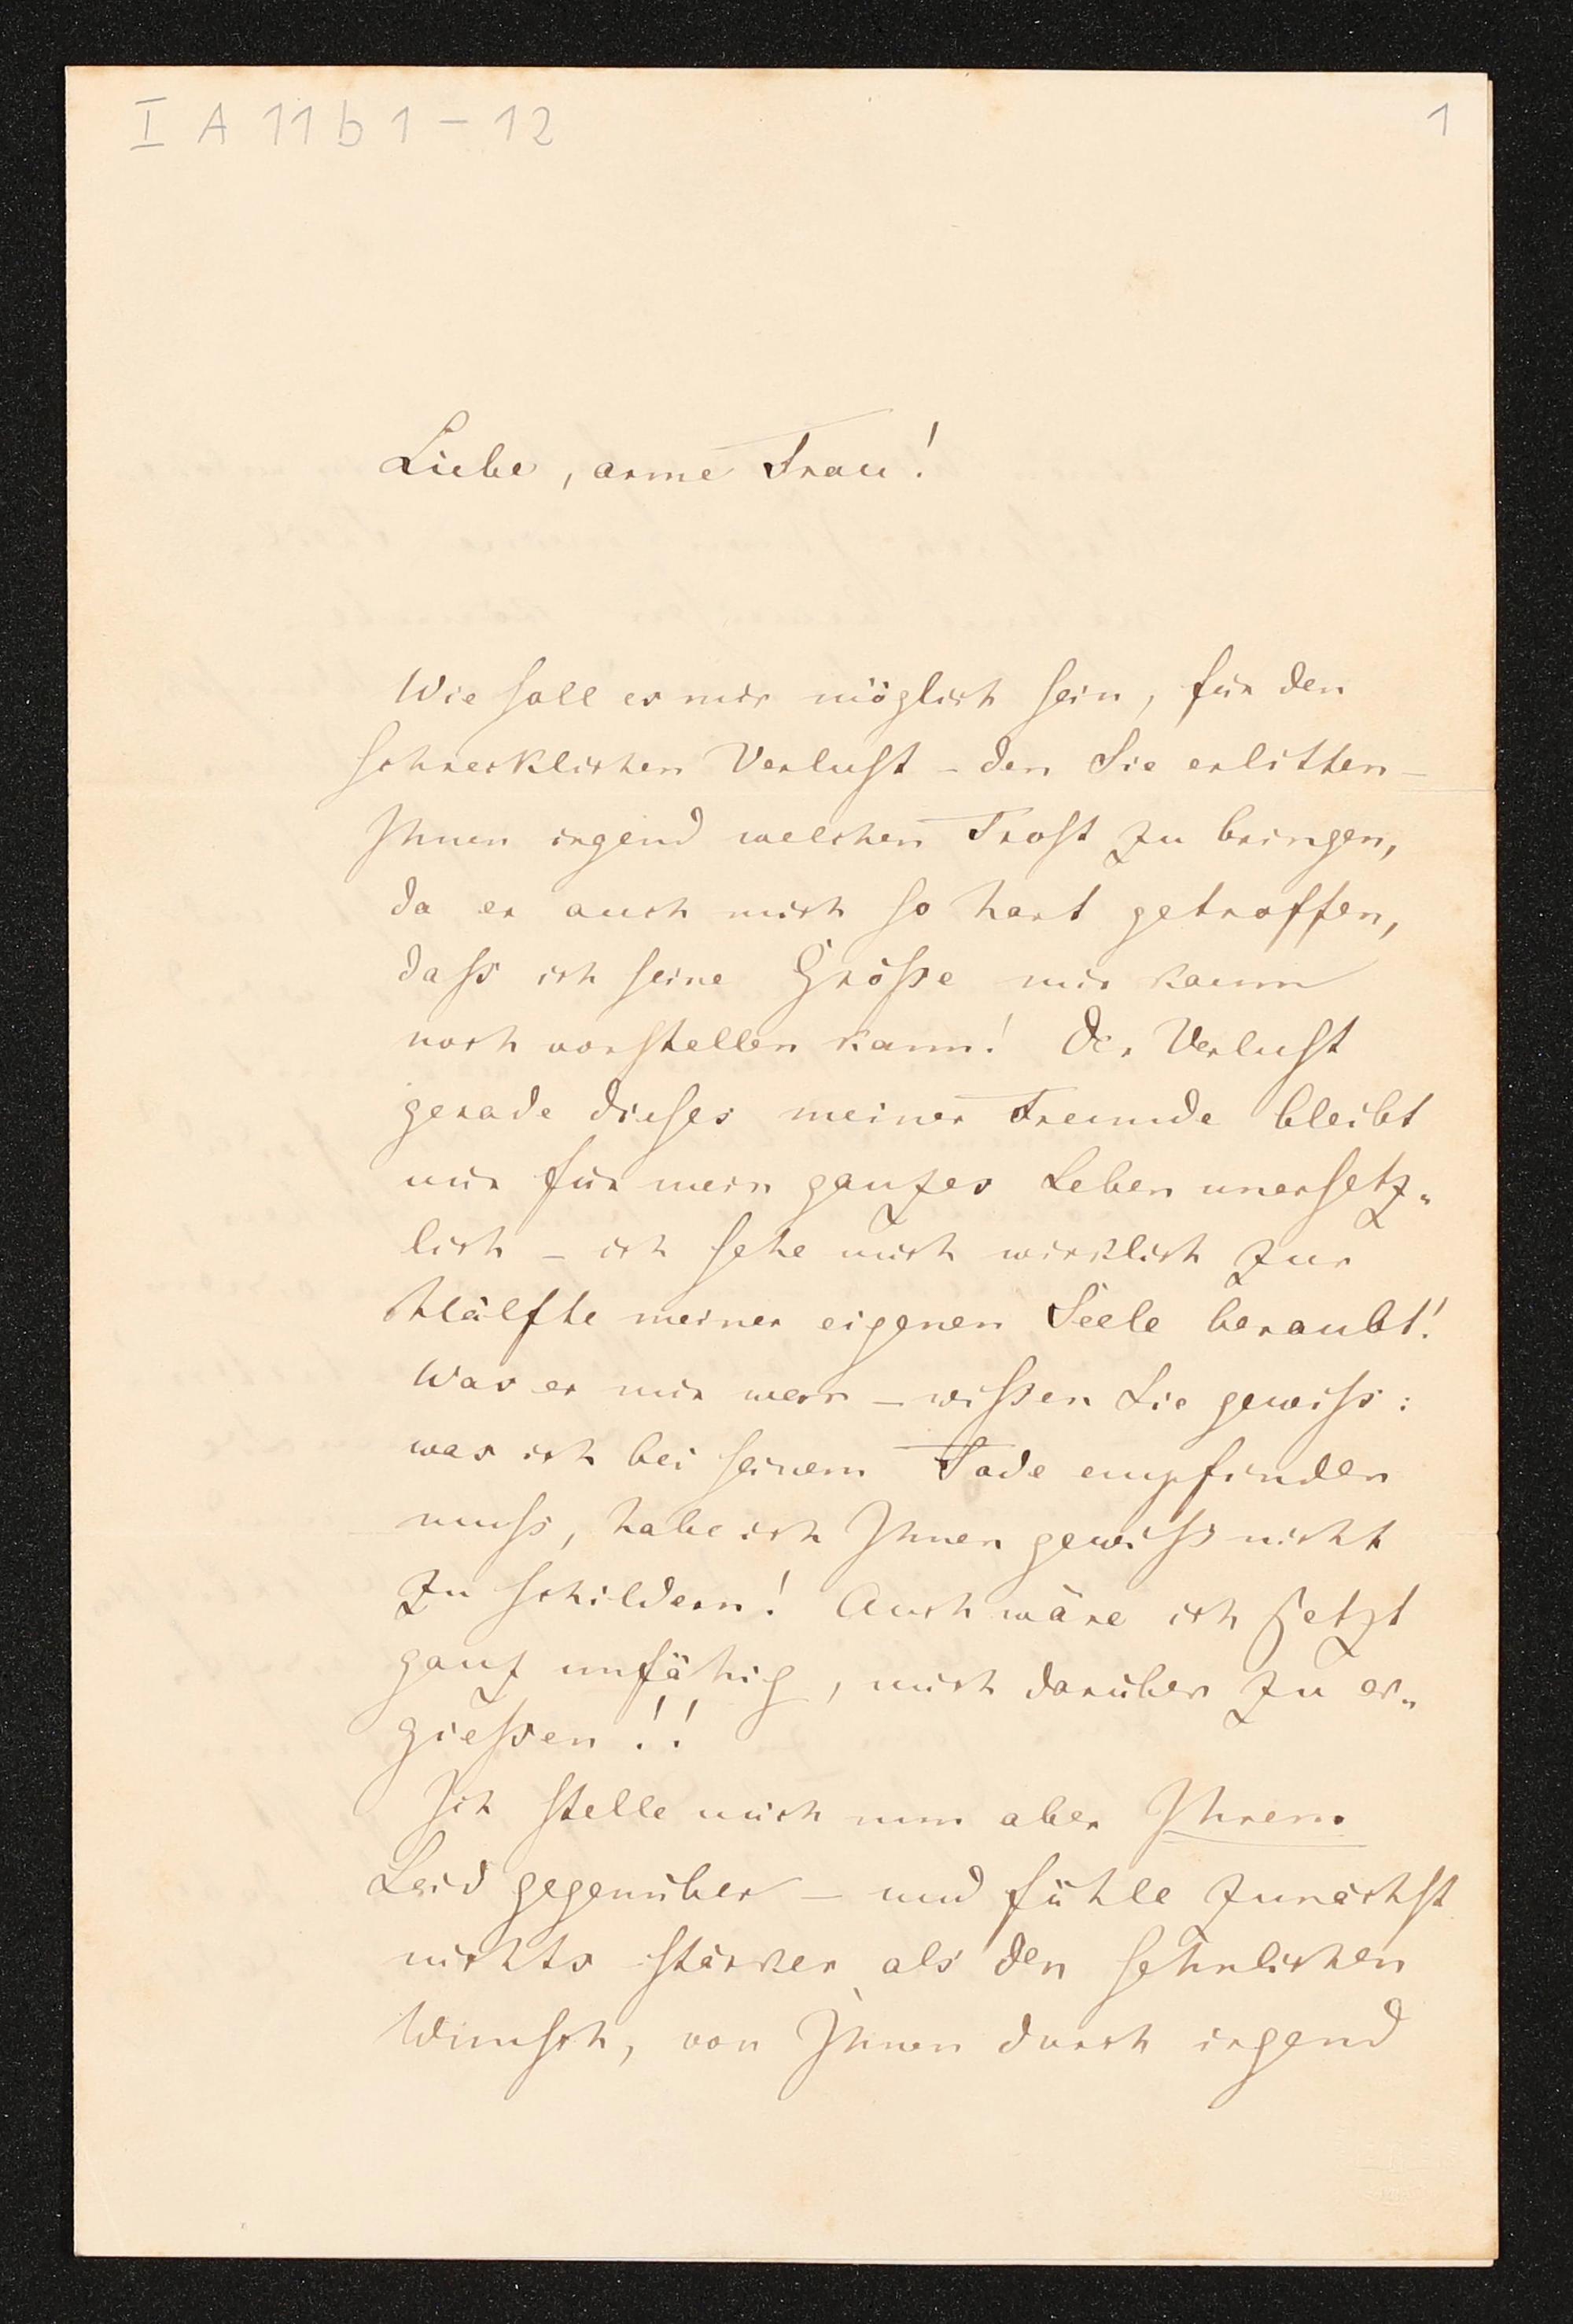 I A 11 b 1 – 12
1
Liebe, arme Frau!
Wie soll es mir möglich sein, für den
schrecklichen Verlust – den Sie erlitten –
Ihnen irgend welchen Trost zu bringen,
da er auch mich so hart getroffen,
dass ich seine Größe mir kaum
noch vorstellen kann! Der Verlust
gerade dieses meiner Freunde bleibt
mir für mein ganzes Leben unersetz-
lich – ich sehe mich wirklich zur
Hälfte meiner eigenen Seele beraubt!
Was er mir war – wissen Sie gewiss:
was ich bei seinem Tode empfinden
muss, habe ich Ihnen gewiss nicht
zu schildern! Auch wäre ich jetzt
ganz unfähig, mich darüber zu er-
giessen!!
Ich stelle mich nun aber Ihrem
Leid gegenüber – und fühle zunächst
nichts stärker als den sehnlichen
Wunsch, von Ihnen durch irgend